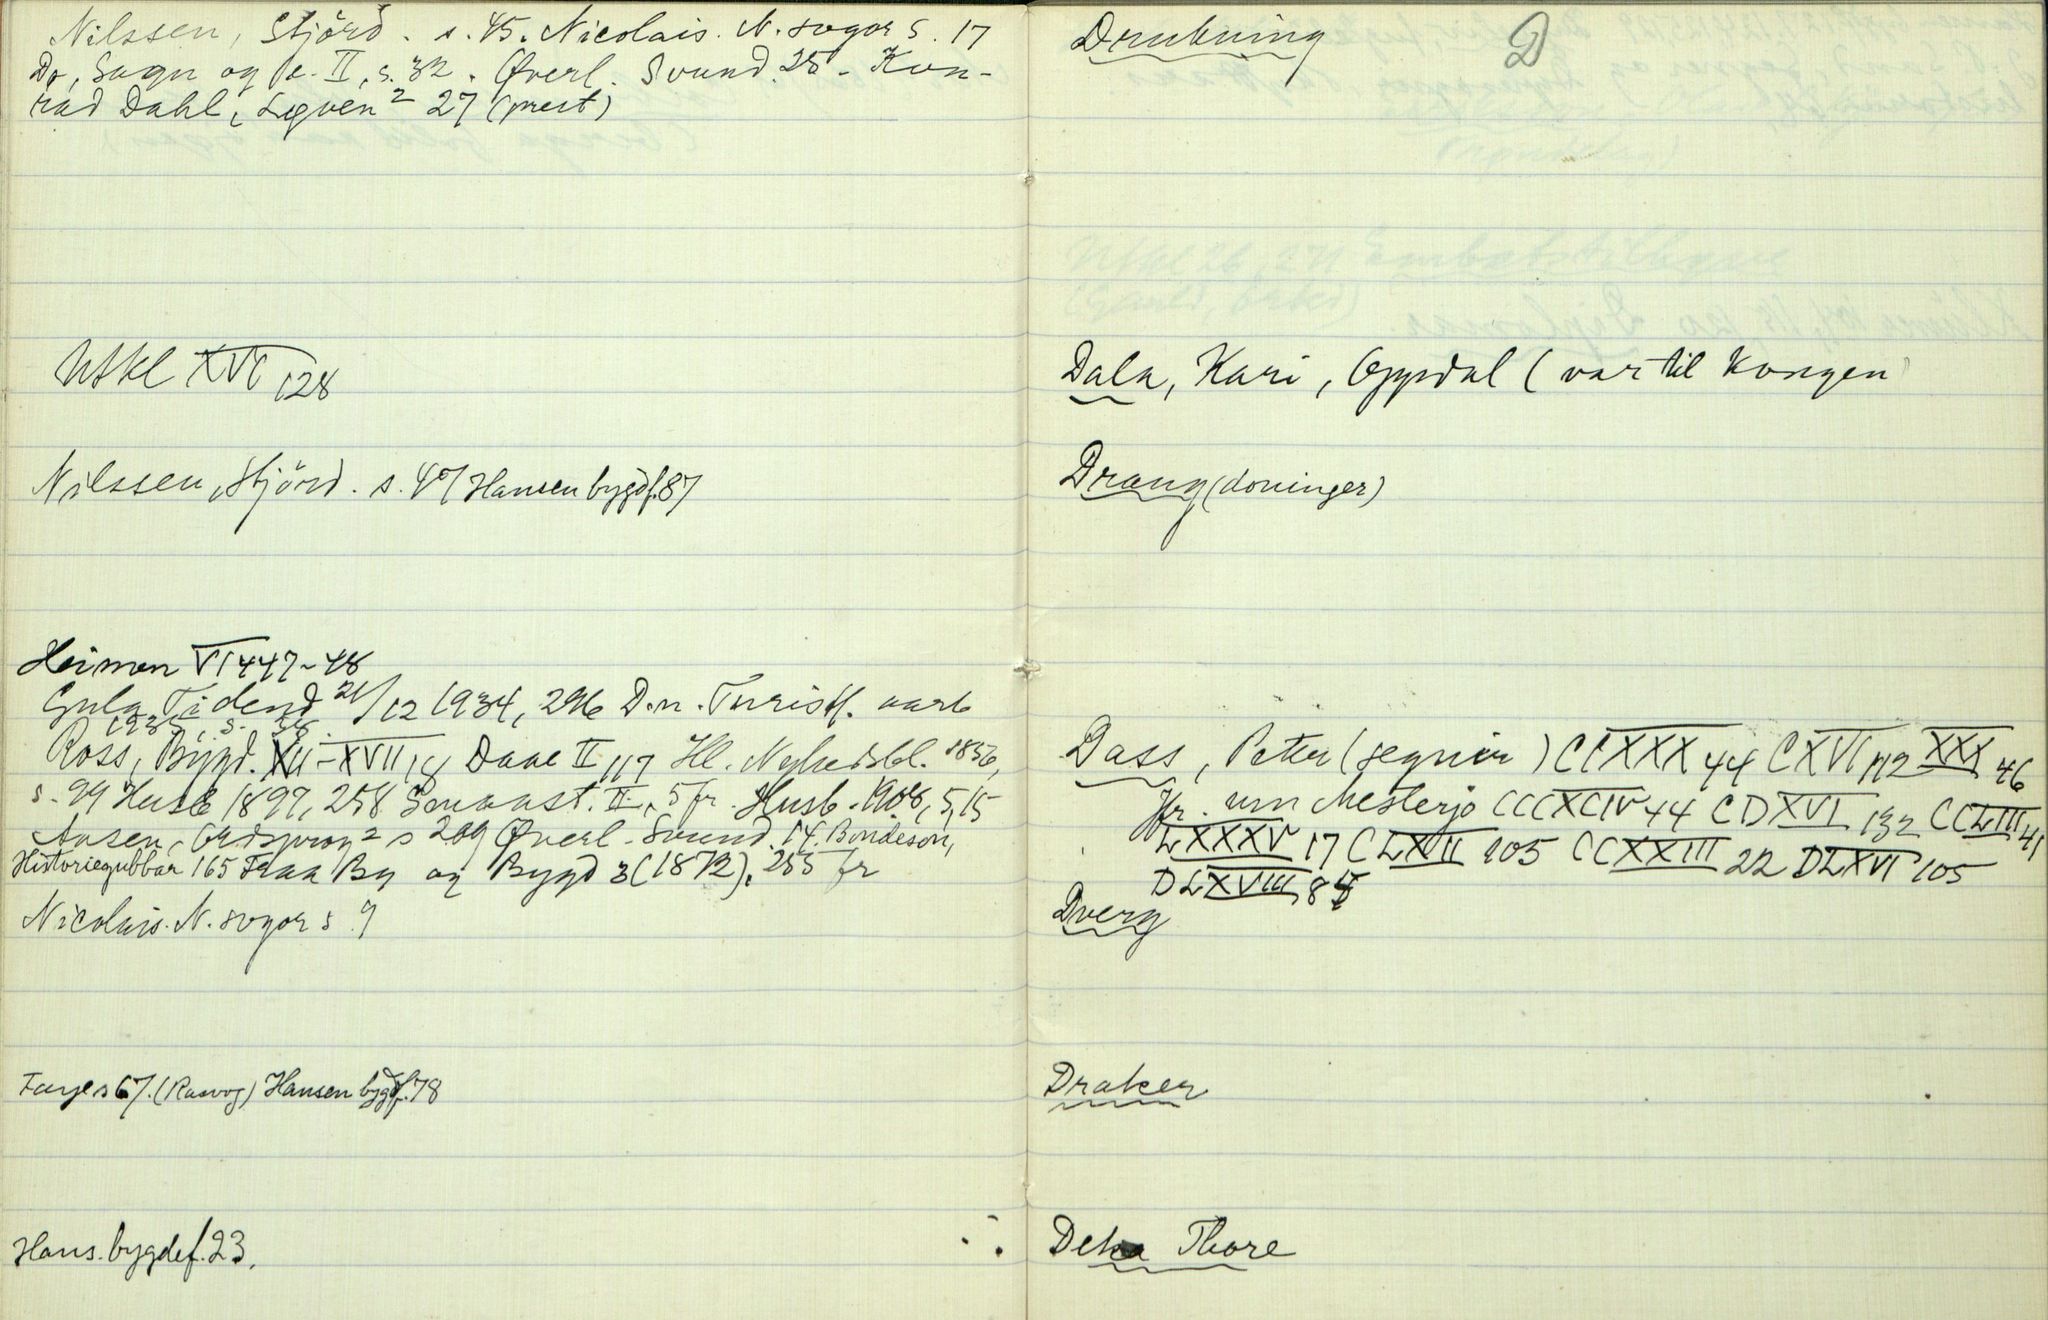 Nilssen, Stjörd. s. 45. Nicolais. N. sogor s. 17
Do, Sagn og e. II, s. 32. Øverl. Svund. 25 - Kon-
rad Dahl, Løven² 27 (prest)
Nfkl XVI 128
Nilssen, Stjörd. s. 47 Hansen bygdf. 87
Heimen VI 447-48
Gula Tidend 21/12 1934, 296 D.n. Turistf. aarb
1935, s. 38.
Ross, Bygd. XII-XVII 18 Daae II 117 Ill. Nyhedsbl. 1856,
s. 99 Husb 1897, 258 Smaast. II, 5 fr. Husb. 1908, 515
Aasen, Ordsprog² s 209 Øverl. Svund. 14. Bondeson,
Historiegubbar 165 Fraa By og Bygd 3 (1872), 255 fr
Nicolais. N. sogor s 9
Faye s 67. (Rasvog) Hansen bygdf. 78
Hans. bygdef. 23.
D
Drukning
Dala, Kari, Oppdal (var til Kongen
Draug (doninger)
Dass, Petter (segner) CCXXX 44 CXVI 112 XXX 46
Hr. um Mesterjo CCCXCIV 44 CDXVI 132 CCLIII 41
LXXXV 17 CLXII 105 CCXXIII 22 DLXVI 105
DLXVIII 84
Dverg
Draker
Deka Thore